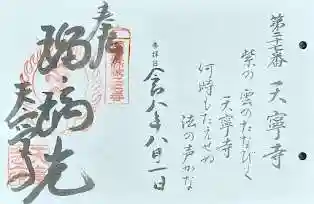 第二十七番 天寧寺
紫の雲のたなびく
天寧寺
何時もたえせぬ
法の声かな
参拝日
令和八年八月一日
奉拝
瑠璃光
天寧寺